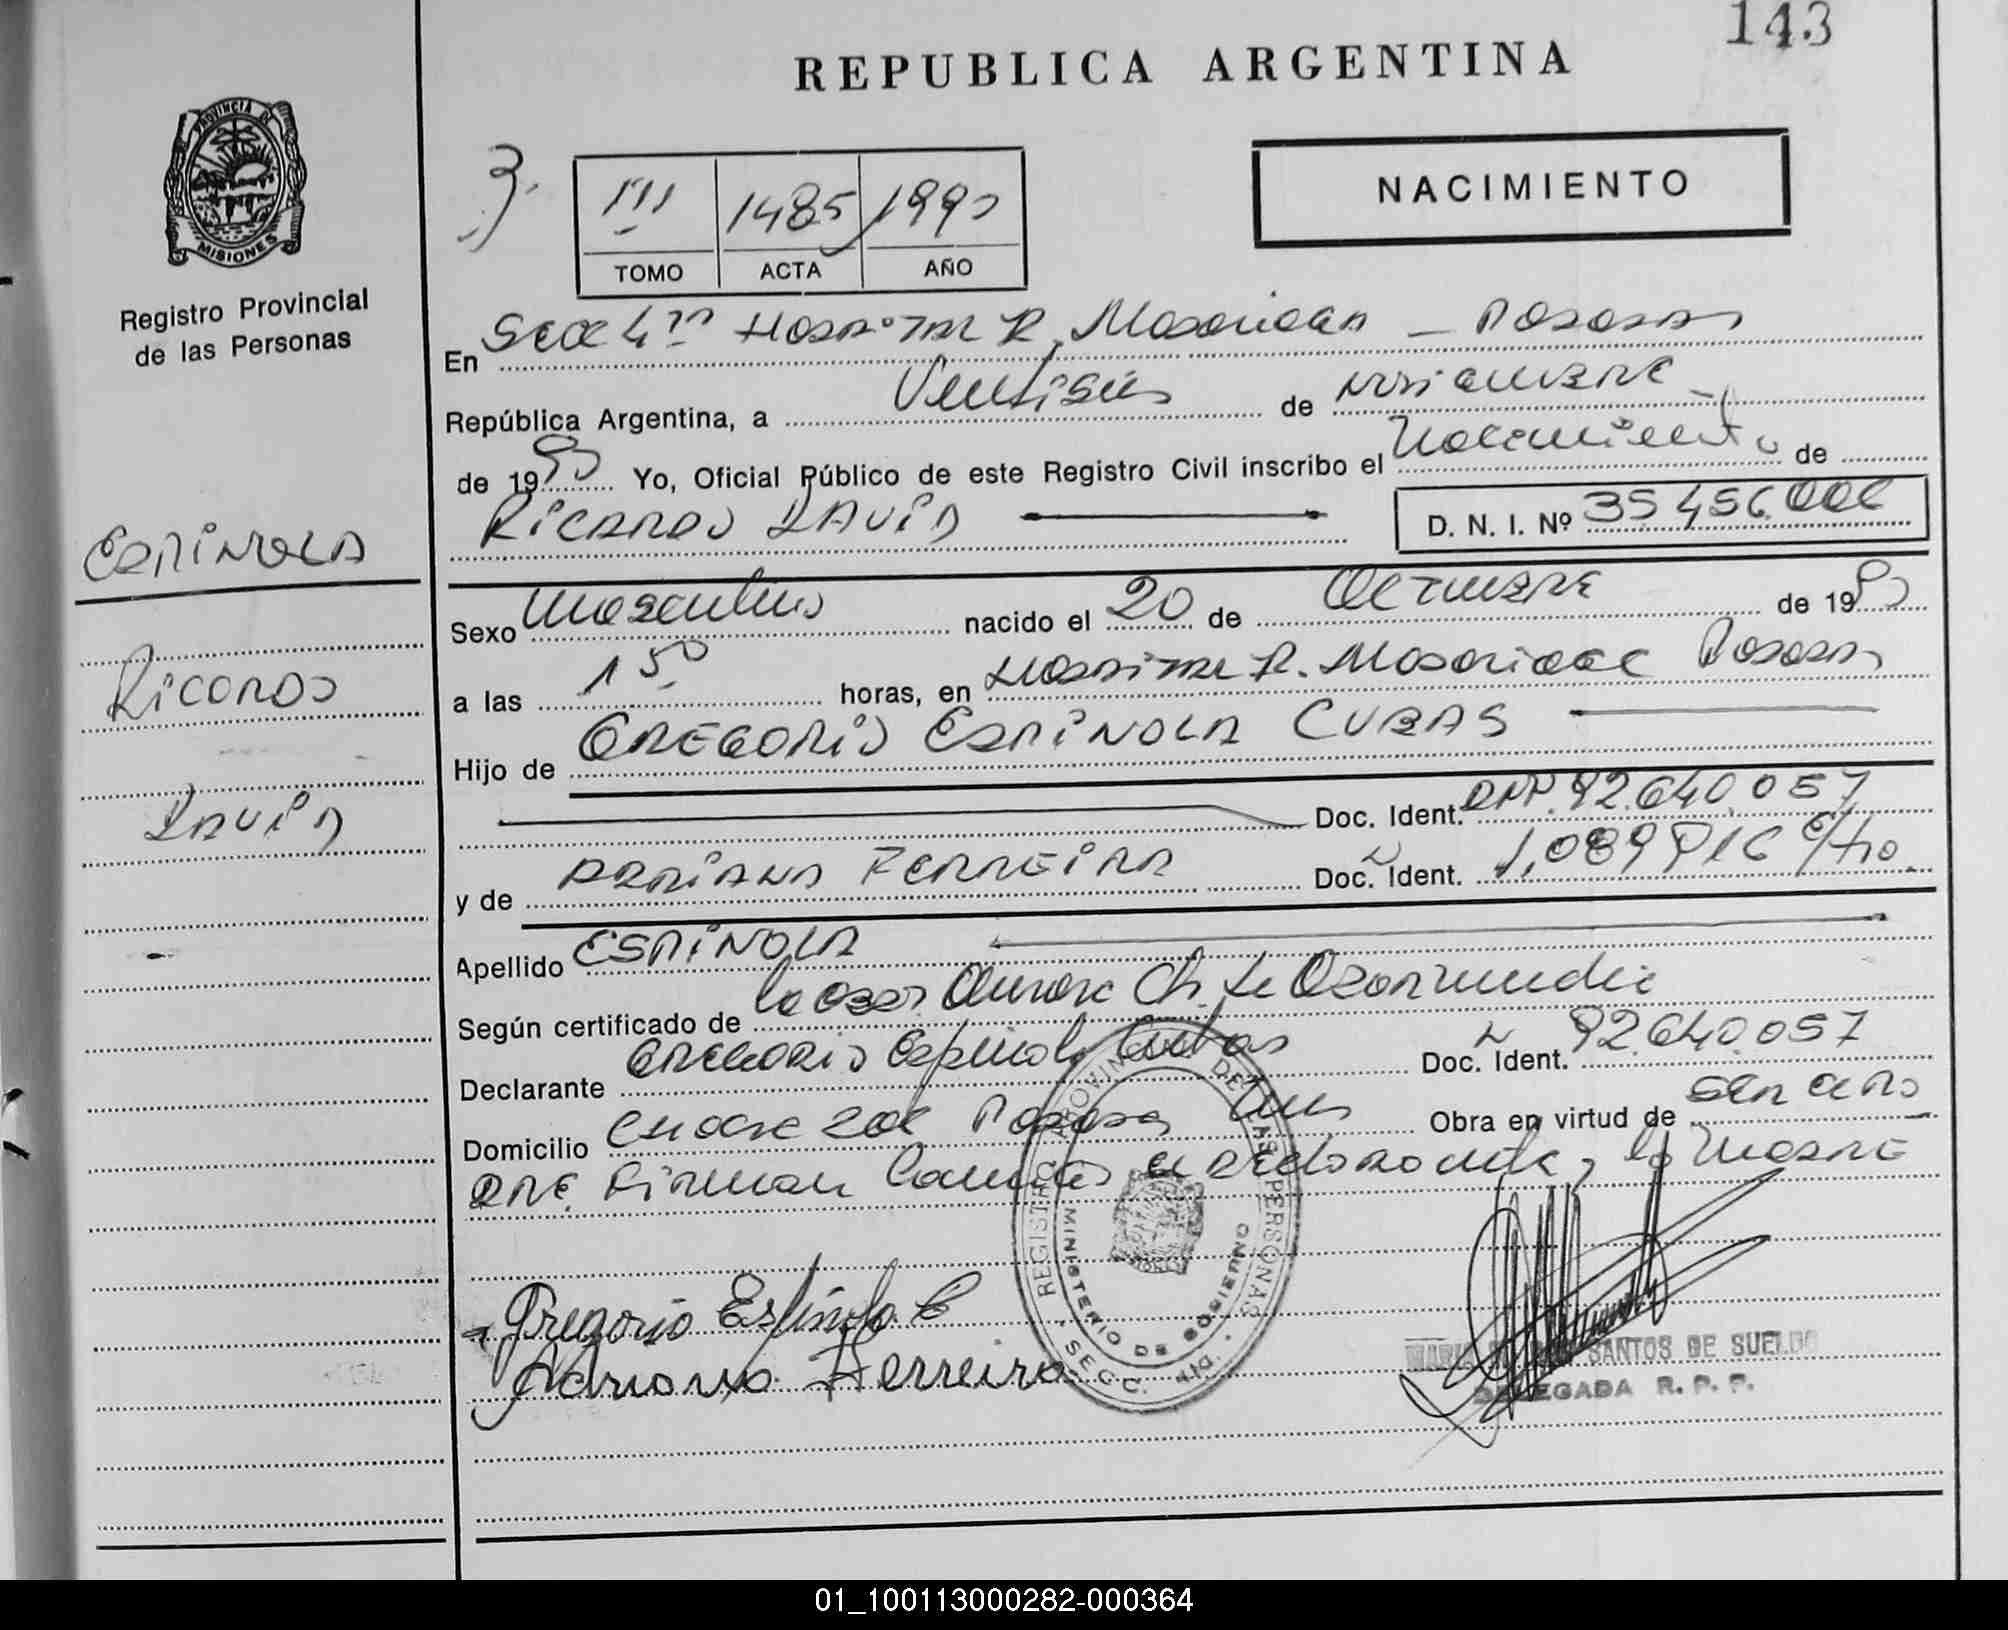 143
REPUBLICA ARGENTINA
PROVINCIA DE
MISIONES
Registro Provincial
de las Personas
NACIMIENTO
III 1485 1990
TOMO ACTA AÑO
En Secc 4ta Hospital R. Madariaga - Posadas
República Argentina, a Veintiseis de noviembre
de 1990 Yo, Oficial Público de este Registro Civil inscribo el Nacimiento de
Ricardo David D. N. I. Nº 35.456.002
ESPINOLA
Ricardo
David
Sexo Masculino nacido el 20 de Octubre de 1990
a las 1 50 horas, en Hospital R. Madariaga Posadas
Hijo de GREGORIO ESPINOLA CUBAS
Doc. Ident. DNI 92.640.057
y de ADRIANA FERREIRA Doc. Ident.
Apellido ESPINOLA
Según certificado de
Declarante Gregorio Espinola Cubas Doc. Ident. 92.640.057
Domicilio Posadas Obra en virtud de
firman la madre
Gregorio Espinola C
Adriana Ferreira
REGISTRO PROVINCIAL DE LAS PERSONAS
MINISTERIO DE GOBIERNO
SECC. 4ta.
SANTOS DE SUELDO
DELEGADA R. P. P.
01_100113000282-000364